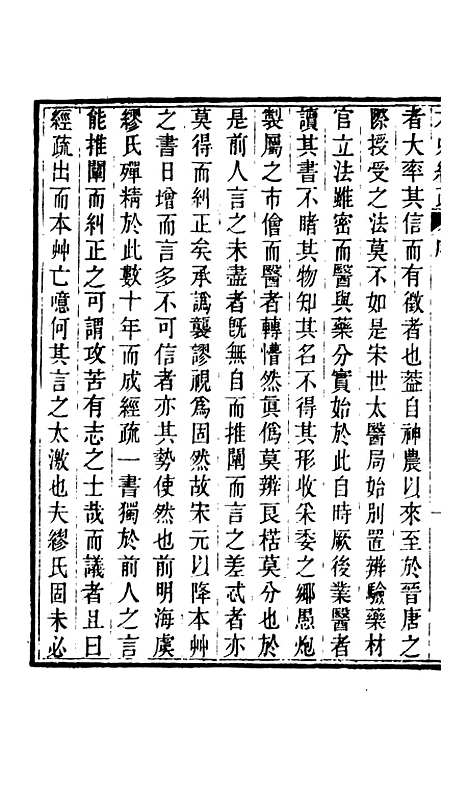 者大率其信而有徵者也葢自神農以來至於晉唐之
際授受之法莫不如是宋世太醫局始別置辨驗藥材
官立法雖密而醫與藥分實始於此自時厥後業醫者
讀其書不睹其物知其名不得其形收采委之鄉愚炮
製屬之巿儈而醫者轉懵然眞僞莫辨良楛莫分也於
是前人言之未盡者旣無自而推闡而言之差忒者亦
莫得而糾正矣承譌襲謬視爲固然故宋元以降本艸
之書日增而言多不可信者亦其勢使然也前明海虞
繆氏殫精於此數十年而成經疏一書獨於前人之言
能推闡而糾正之可謂攻苦有志之士哉而議者且曰
經疏出而本艸亡噫何其言之太激也夫繆氏固未必